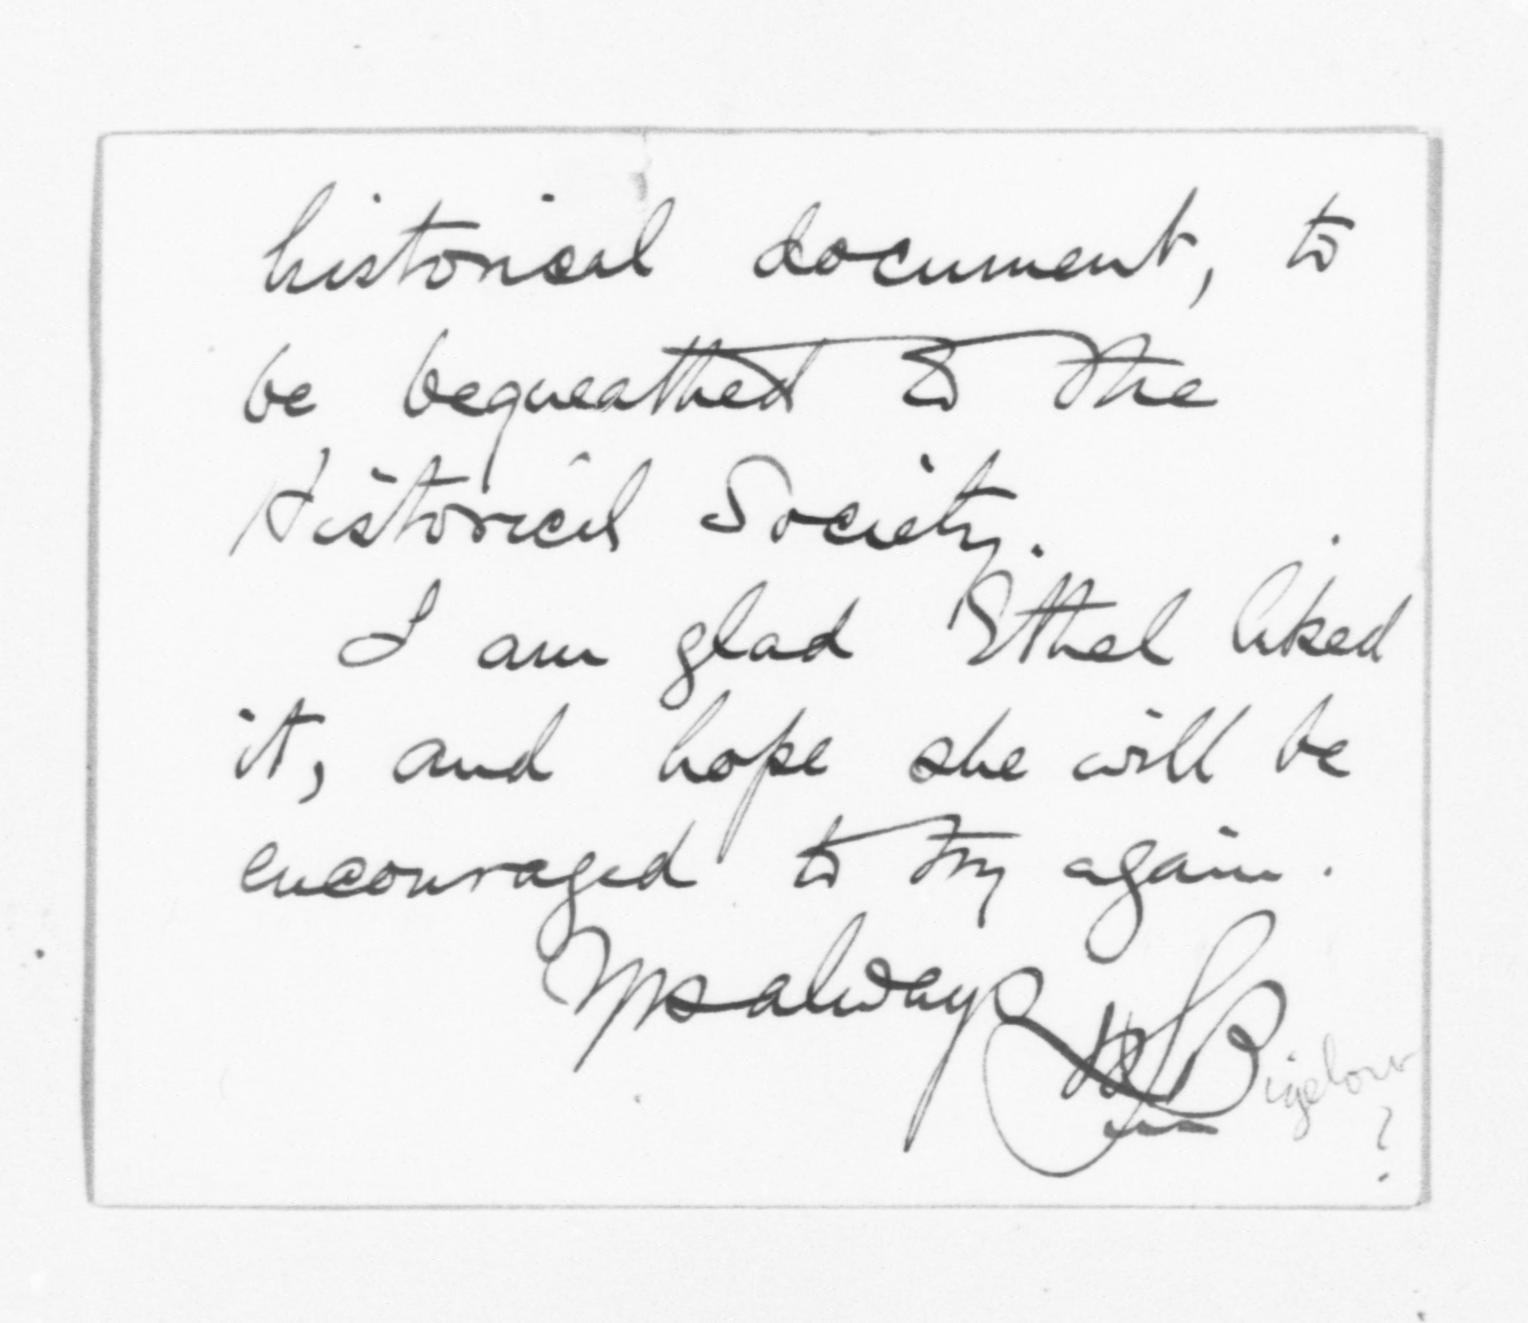 historical document, to
be bequeathed to the
Historical Society.
I am glad Ethel liked
it, and hope she will be
encouraged to try again.
Yrs always
Bigelow
?